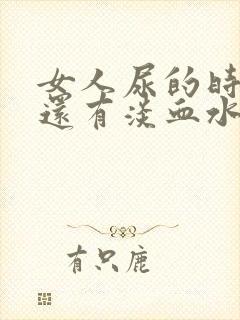 女人尿的时
還有淡血水
有只鹿